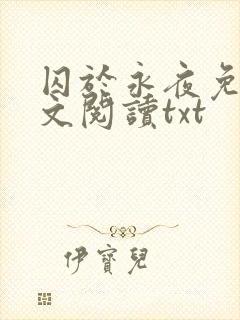 囚於永夜免
文閱讀txt
伊寶兒